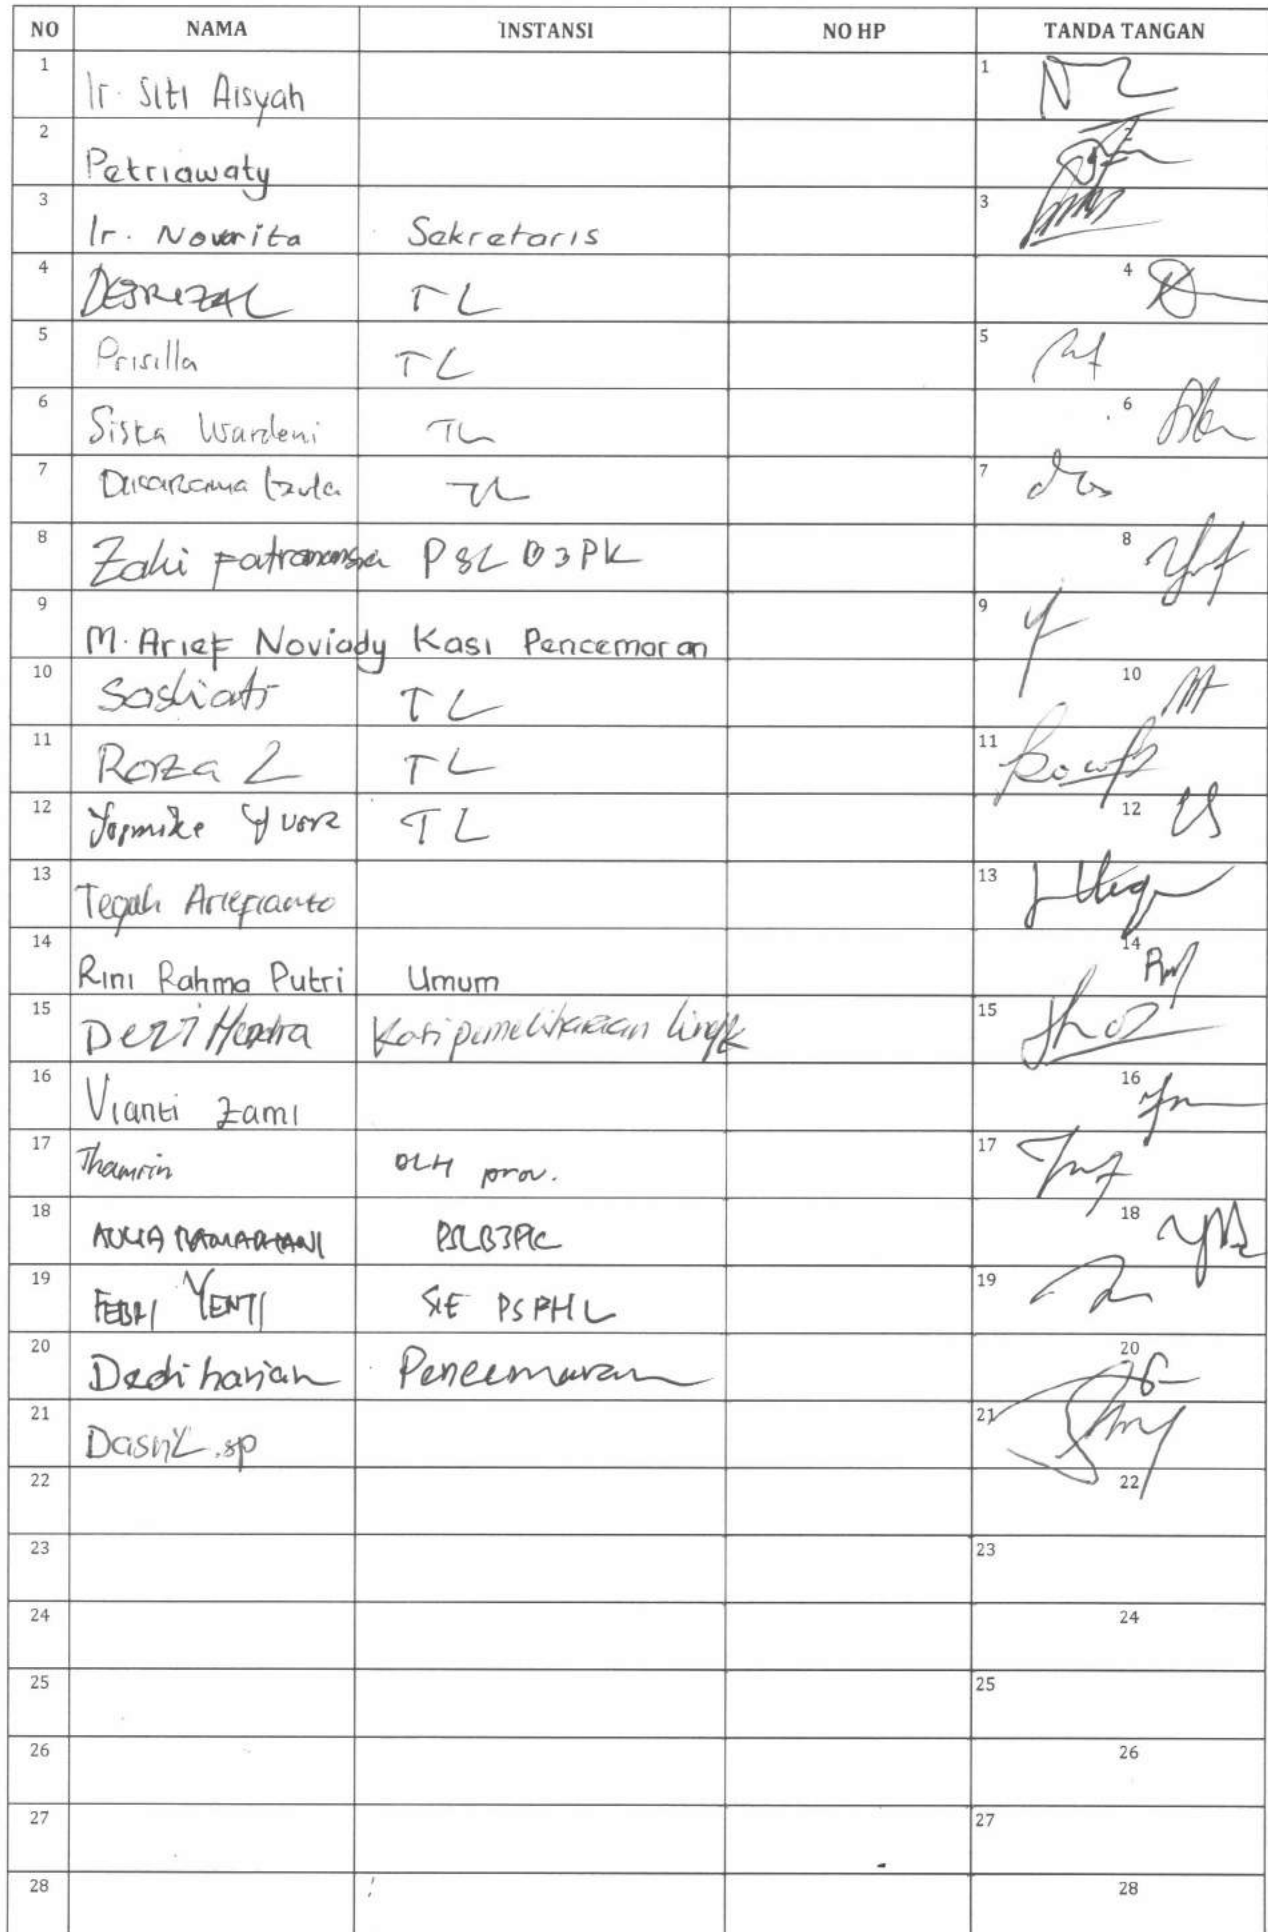 NO NAMA INSTANSI NO HP TANDA TANGAN
1 Ir. Siti Aisyah 1
2 Petriawaty 2
3 Ir. Novarita Sekretaris 3
4 DESRIZAL TL 4
5 Prisilla TL 5
6 Siska Wardeni TL 6
7 TL 7
8 Zaki PSLB3PK 8
9 M. Arief Noviady Kasi Pencemaran 9
10 Sasliati TL 10
11 Roza L TL 11
12 TL 12
13 Teguh Ariefianto 13
14 Rini Rahma Putri Umum 14
15 Dezi Hendra Kasi pemeliharaan lingk 15
16 Vianti Zami 16
17 Thamrin DLH prov. 17
18 AULIA RAMADHANI PSLB3PK 18
19 FEBRI YENTI SIE PSPHL 19
20 Dedi hanjah Pencemaran 20
21 21
22 22
23 23
24 24
25 25
26 26
27 27
28 28